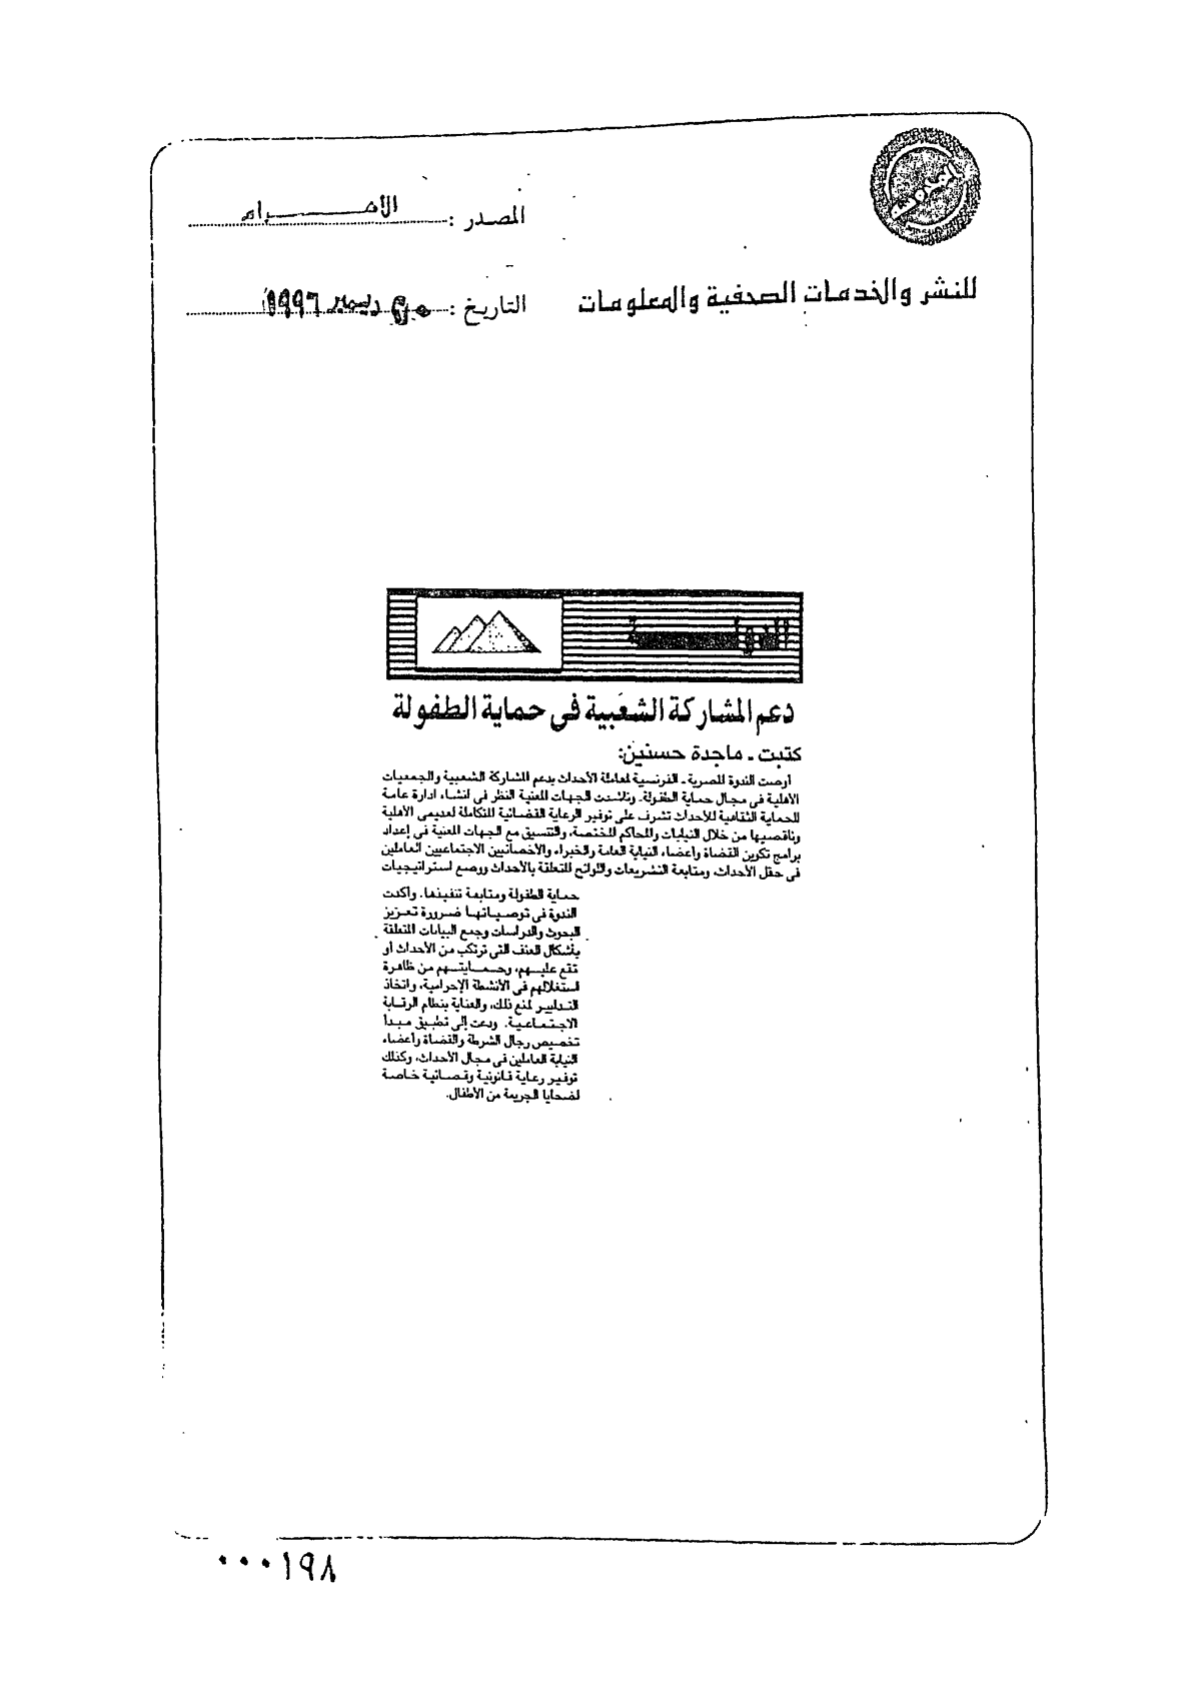 المصدر : الأهــــرام
للنشر والخدمات الصحفية والمعلومات
التاريخ : ديسمبر ١٩٩٦
دعم المشاركة الشعبية فى حماية الطفولة
كتبت ـ ماجدة حسنين:
أوصت الندوة المصرية ـ الفرنسية لمعاملة الأحداث بدعم المشاركة الشعبية والجمعيات
الأهلية فى مجال حماية الطفولة. وناشدت الجهات المعنية النظر فى انشاء ادارة عامة
للحماية القضائية للأحداث تشرف على توفير الرعاية القضائية المتكاملة لعديمى الأهلية
وناقصيها من خلال النيابات والمحاكم المختصة، والتنسيق مع الجهات المعنية فى إعداد
برامج تكوين القضاة وأعضاء النيابة العامة والخبراء والأخصائيين الاجتماعيين العاملين
فى حقل الأحداث، ومتابعة التشريعات واللوائح المتعلقة بالأحداث ووضع استراتيجيات
حماية الطفولة ومتابعة تنفيذها. وأكدت
الندوة فى توصياتها ضرورة تعزيز
البحوث والدراسات وجمع البيانات المتعلقة
بأشكال العنف التى ترتكب من الأحداث أو
تقع عليهم، وحمايتهم من ظاهرة
استغلالهم فى الأنشطة الإجرامية، واتخاذ
التدابير لمنع ذلك، والعناية بنظام الرقابة
الاجتماعية. ودعت إلى تطبيق مبدأ
تخصيص رجال الشرطة والقضاة وأعضاء
النيابة العاملين فى مجال الأحداث، وكذلك
توفير رعاية قانونية وقضائية خاصة
لضحايا الجريمة من الأطفال.
٠٠٠١٩٨